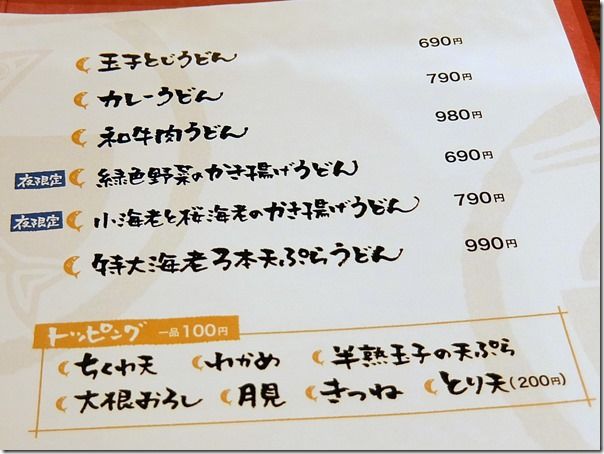 玉子とじうどん 690円
カレーうどん 790円
和牛肉うどん 980円
夜限定 緑色野菜のかき揚げうどん 690円
夜限定 小海老と桜海老のかき揚げうどん 790円
特大海老3本天ぷらうどん 990円
トッピング 一品100円
ちくわ天 わかめ 半熟玉子の天ぷら
大根おろし 月見 きつね とり天(200円)